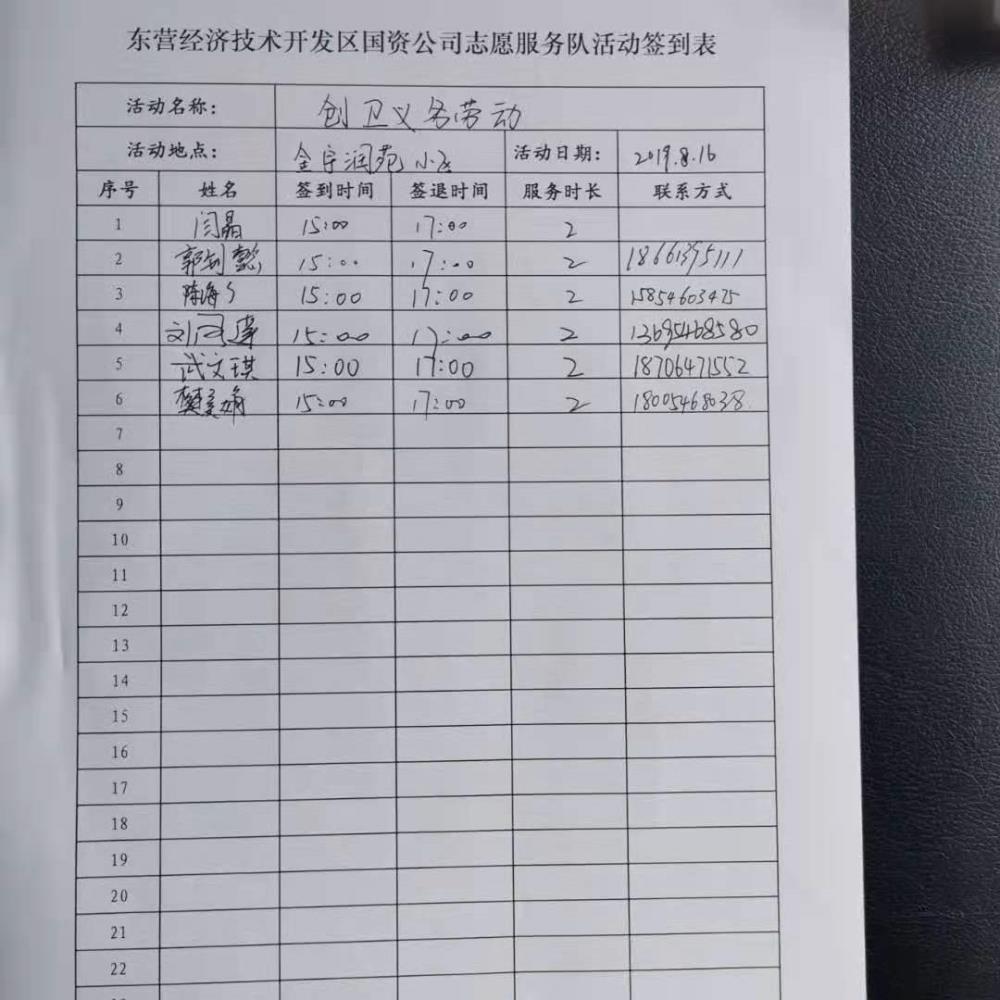 东营经济技术开发区国资公司志愿服务队活动签到表
活动名称： 创卫义务劳动
活动地点： 金宇润苑小区 活动日期： 2019.8.16
序号 姓名 签到时间 签退时间 服务时长 联系方式
1 闫晶 15:00 17:00 2
2 郭 懿 15:00 17:00 2 18661395111
3 陈海 15:00 17:00 2 15854603475
4 刘 15:00 17:00 2 13695468580
5 武文琪 15:00 17:00 2 18706471552
6 樊 娟 15:00 17:00 2 18005468038
7
8
9
10
11
12
13
14
15
16
17
18
19
20
21
22